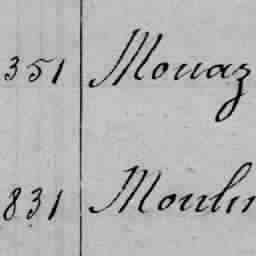 351 Mouaz
831 Moulin